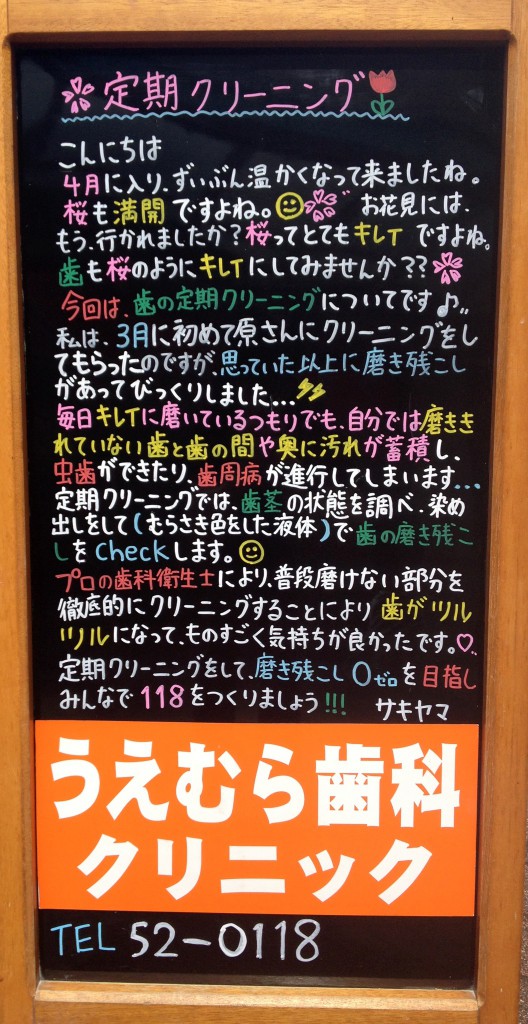 定期クリーニング
こんにちは
4月に入り、ずいぶん温かくなって来ましたね。
桜も満開ですよね。 お花見には、
もう、行かれましたか？桜ってとてもキレイですよね。
歯も桜のようにキレイにしてみませんか??
今回は、歯の定期クリーニングについてです♪
私は、3月に初めて原さんにクリーニングをし
てもらったのですが、思っていた以上に磨き残こし
があってびっくりしました...
毎日キレイに磨いているつもりでも、自分では磨きき
れていない歯と歯の間や奥に汚れが蓄積し、
虫歯ができたり、歯周病が進行してしまいます...
定期クリーニングでは、歯茎の状態を調べ、染め
出しをして(むらさき色をした液体)で歯の磨き残こ
しをcheckします。
プロの歯科衛生士により、普段磨けない部分を
徹底的にクリーニングすることにより 歯がツル
ツルになって、ものすごく気持ちが良かったです。♡
定期クリーニングをして、磨き残こし0ゼロを目指し
みんなで118をつくりましょう!!! サキヤマ
うえむら歯科
クリニック
TEL 52-0118